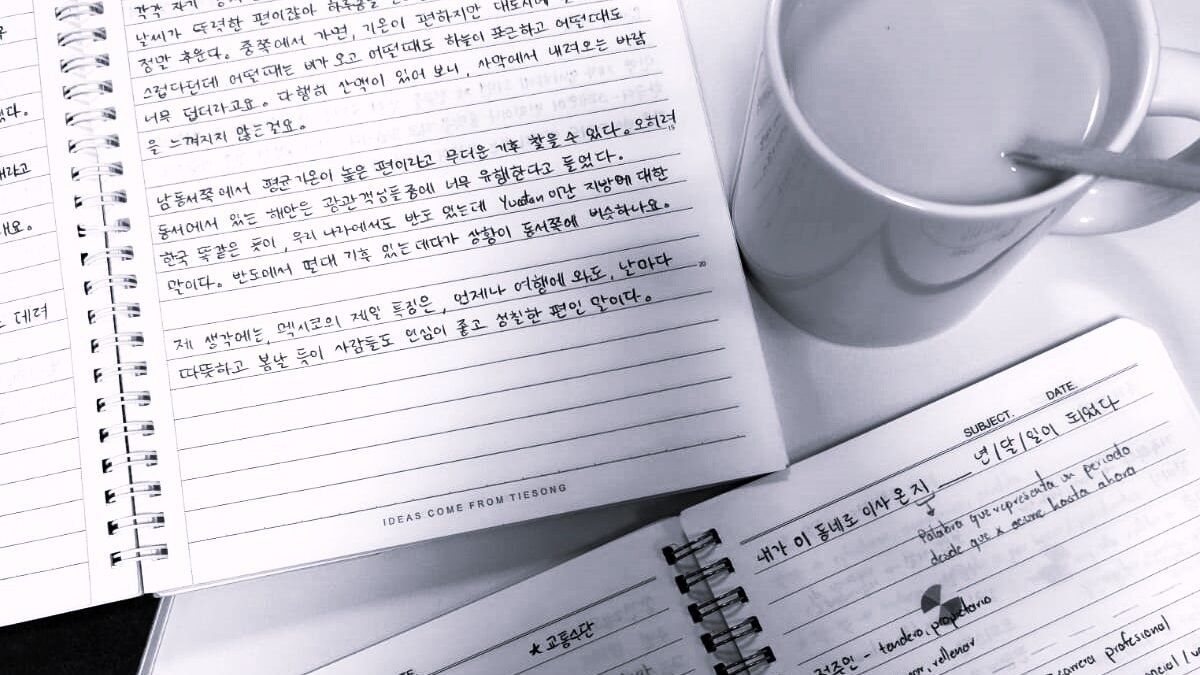 각각 자기
날씨가 뚜렷한 편이잖아
정말 추운다. 중쪽에서 가면, 기온이 편하지만 대도시에
스럽다던데 어떨때는 비가 오고 어떨때도 하늘이 포근하고 어떨때도
너무 덥더라고요. 다행히 산맥이 있어 보니, 사막에서 내려오는 바람
을 느껴지지 않는건요.
남동서쪽에서 평균기온이 높은 편이라고 무더운 기후 찾을 수 있다. 오히려
15
동서에서 있는 해안은 광관객님들중에 너무 유행한다고 들었다.
한국 똑같은 듯이, 우리 나라에서도 반도 있는데 Yucatan이란 지방에 대한
말이다. 반도에서 열대 기후 있는데다가 상황이 동서쪽에 비슷하나요.
20
제 생각에는, 멕시코의 제일 특징은, 언제나 여행에 와도, 날마다
따뜻하고 봄날 듯이 사람들도 인심이 좋고 성칠한 편인 말이다.
IDEAS COME FROM TIESONG
다.
라고
요.
데려
SUBJECT. DATE.
내가 이 동네로 이사 온지 ____ 년/달/일이 되었다
Palabra que representa un periodo
desde que x ocurre hasta ahora
- tendero, propietario
rellenar
carrera profesional
★ 교통수단